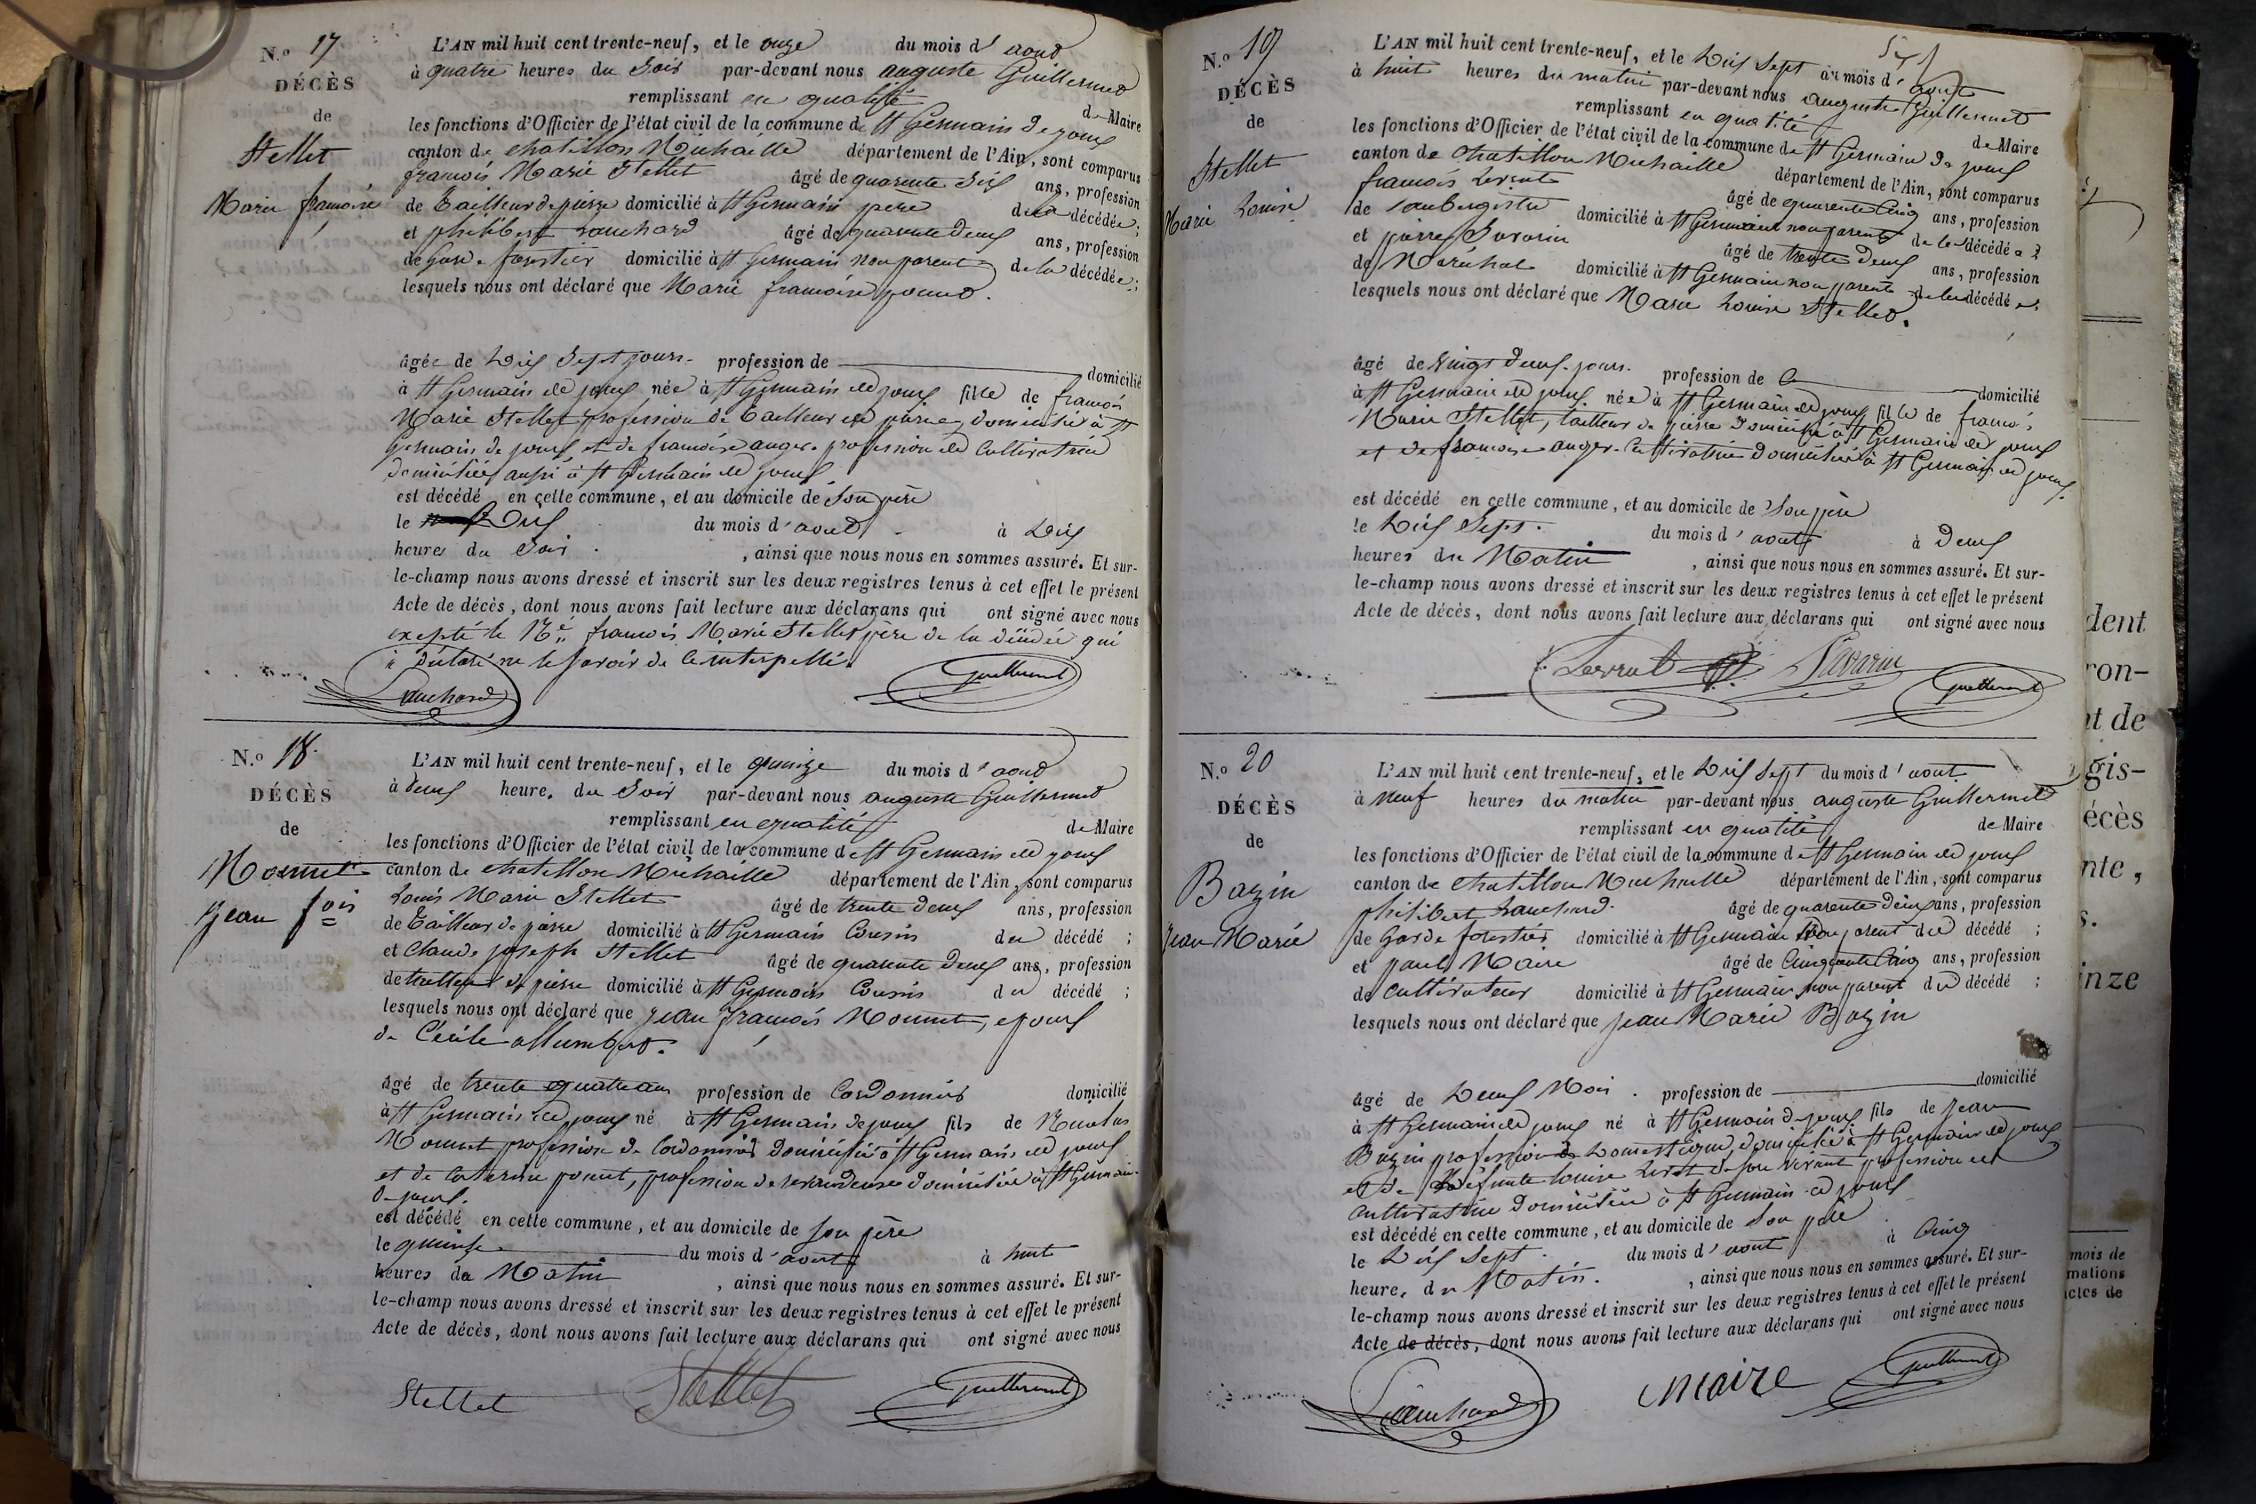 N.o 17
DÉCÈS
de
Stellet
Marie françoise
L'AN mil huit cent trente-neuf, et le onze du mois d'aout
à quatre heures du Soir par-devant nous auguste Guillermet
remplissant en qualité de Maire
les fonctions d'Officier de l'état civil de la commune de St Germain de joux
canton de chatillon Michaille département de l'Ain, sont comparus
françois Marie Stellet âgé de quarente Six ans, profession
de Tailleur de pierre domicilié à St Germain père de la décédée ;
et philibert Lauchard âgé de quarente deux ans, profession
de garde forestier domicilié à St Germain non parent de la décédée ;
lesquels nous ont déclaré que Marie françoise
âgée de Dix Sept jours profession de domicilié
à St Germain de joux née à St Germain de joux fille de françois
Marie Stellet profession de Tailleur de pierre, domicilié à St
Germain de joux et de françoise anger profession de Cultivatrice
domiciliée aussi à St Germain de joux
est décédé en cette commune, et au domicile de Son père
le Dix du mois d'aout à Dix
heures du Soir , ainsi que nous nous en sommes assuré. Et sur-
le-champ nous avons dressé et inscrit sur les deux registres tenus à cet effet le présent
Acte de décès, dont nous avons fait lecture aux déclarans qui ont signé avec nous
excepté le françois Marie Stellet père de la décédée qui
à déclaré ne le Savoir de Ce interpellé
Lauchard Guillermet
N.o 18
DÉCÈS
de
Monnet
jean fois
L'AN mil huit cent trente-neuf, et le quinze du mois d'aout
à deux heures du Soir par-devant nous auguste Guillermet
remplissant en qualité de Maire
les fonctions d'Officier de l'état civil de la commune de St Germain de joux
canton de chatillon Michaille département de l'Ain, sont comparus
Louis Marie Stellet âgé de trente deux ans, profession
de Tailleur de pierre domicilié à St Germain Cousin du décédé ;
et Claude joseph Stellet âgé de quarente deux ans, profession
de tailleur de pierre domicilié à St Germain Cousin du décédé ;
lesquels nous ont déclaré que jean françois Monnet, epoux
de Cécile allumbert.
âgé de trente quatre ans profession de Cordonnier domicilié
à St Germain de joux né à St Germain de joux fils de Nicolas
Monnet profession de Cordonnier domicilié à St Germain de joux
et de Catherine ponnet, profession de domiciliée à St Germain
de joux.
est décédé en cette commune, et au domicile de Son père
le quinze du mois d'aout à huit
heures du Matin , ainsi que nous nous en sommes assuré. Et sur-
le-champ nous avons dressé et inscrit sur les deux registres tenus à cet effet le présent
Acte de décès, dont nous avons fait lecture aux déclarans qui ont signé avec nous
Stellet Stellet Guillermet
N.o 19
DÉCÈS
de
Stellet
Marie Louise
L'AN mil huit cent trente-neuf, et le Dix Sept du mois d'aout
à huit heures du matin par-devant nous auguste Guillermet
remplissant en qualité de Maire
les fonctions d'Officier de l'état civil de la commune de St Germain de joux
canton de chatillon Michaille département de l'Ain, sont comparus
françois âgé de quarente Cinq ans, profession
de aubergiste domicilié à St Germain non parent de la décédée ;
et pierre Savarin âgé de trente deux ans, profession
de Maréchal domicilié à St Germain non parent de la décédée ;
lesquels nous ont déclaré que Marie Louise Stellet.
âgé de Vingt deux jours. profession de domicilié
à St Germain de joux née à St Germain de joux fille de françois
Marie Stellet, tailleur de pierre domicilié à St Germain de joux
et de françoise anger Cultivatrice domiciliée à St Germain de joux.
est décédé en cette commune, et au domicile de Son père
le Dix Sept du mois d'aout à Deux
heures du Matin , ainsi que nous nous en sommes assuré. Et sur-
le-champ nous avons dressé et inscrit sur les deux registres tenus à cet effet le présent
Acte de décès, dont nous avons fait lecture aux déclarans qui ont signé avec nous
Savarin Guillermet
N.o 20
DÉCÈS
de
Bazin
Jean Marie
L'AN mil huit cent trente-neuf, et le Dix Sept du mois d'aout
à Neuf heures du matin par-devant nous auguste Guillermet
remplissant en qualité de Maire
les fonctions d'Officier de l'état civil de la commune de St Germain de joux
canton de chatillon Michaille département de l'Ain, sont comparus
philibert Lauchard âgé de quarente deux ans, profession
de Garde forestier domicilié à St Germain Non parent du décédé ;
et paul Maire âgé de Cinquante Cinq ans, profession
de Cultivateur domicilié à St Germain, non parent du décédé ;
lesquels nous ont déclaré que jean Marie Bazin
âgé de Deux Mois . profession de domicilié
à St Germain de joux né à St Germain de joux fils de jean
Bazin profession de Domestique, domicilié à St Germain de joux
et de défunte Louise de Son vivant profession de
Cultivatrice domiciliée à St Germain de joux
est décédé en cette commune, et au domicile de Son père
le Dix Sept du mois d'aout à Cinq
heures du Matin. , ainsi que nous nous en sommes assuré. Et sur-
le-champ nous avons dressé et inscrit sur les deux registres tenus à cet effet le présent
Acte de décès, dont nous avons fait lecture aux déclarans qui ont signé avec nous
Lauchard Maire Guillermet
dent
ron-
nt de
gis-
écès
nte,
s.
inze
mois de
mations
actes de